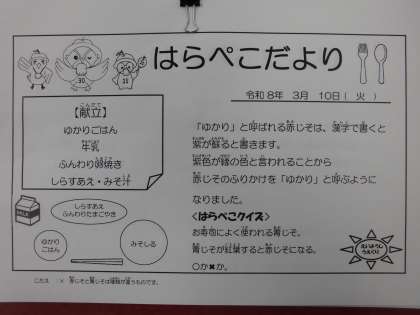 はらぺこだより
令和8年 3月 10日( 火 )
【献立】
ゆかりごはん
牛乳
ふんわり卵焼き
しらすあえ・みそ汁
しらすあえ
ふんわりたまごやき
ゆかり
ごはん
みそしる
「ゆかり」と呼ばれる赤じそは、漢字で書くと
紫が蘇ると書きます。
紫色が縁の色と言われることから
赤じそのふりかけを「ゆかり」と呼ぶように
なりました。
<はらぺこクイズ>
お寿司によく使われる青じそ。
青じそが紅葉すると赤じそになる。
○か✖か。
こたえ :× 赤じそと青じそは種類が違うものです。